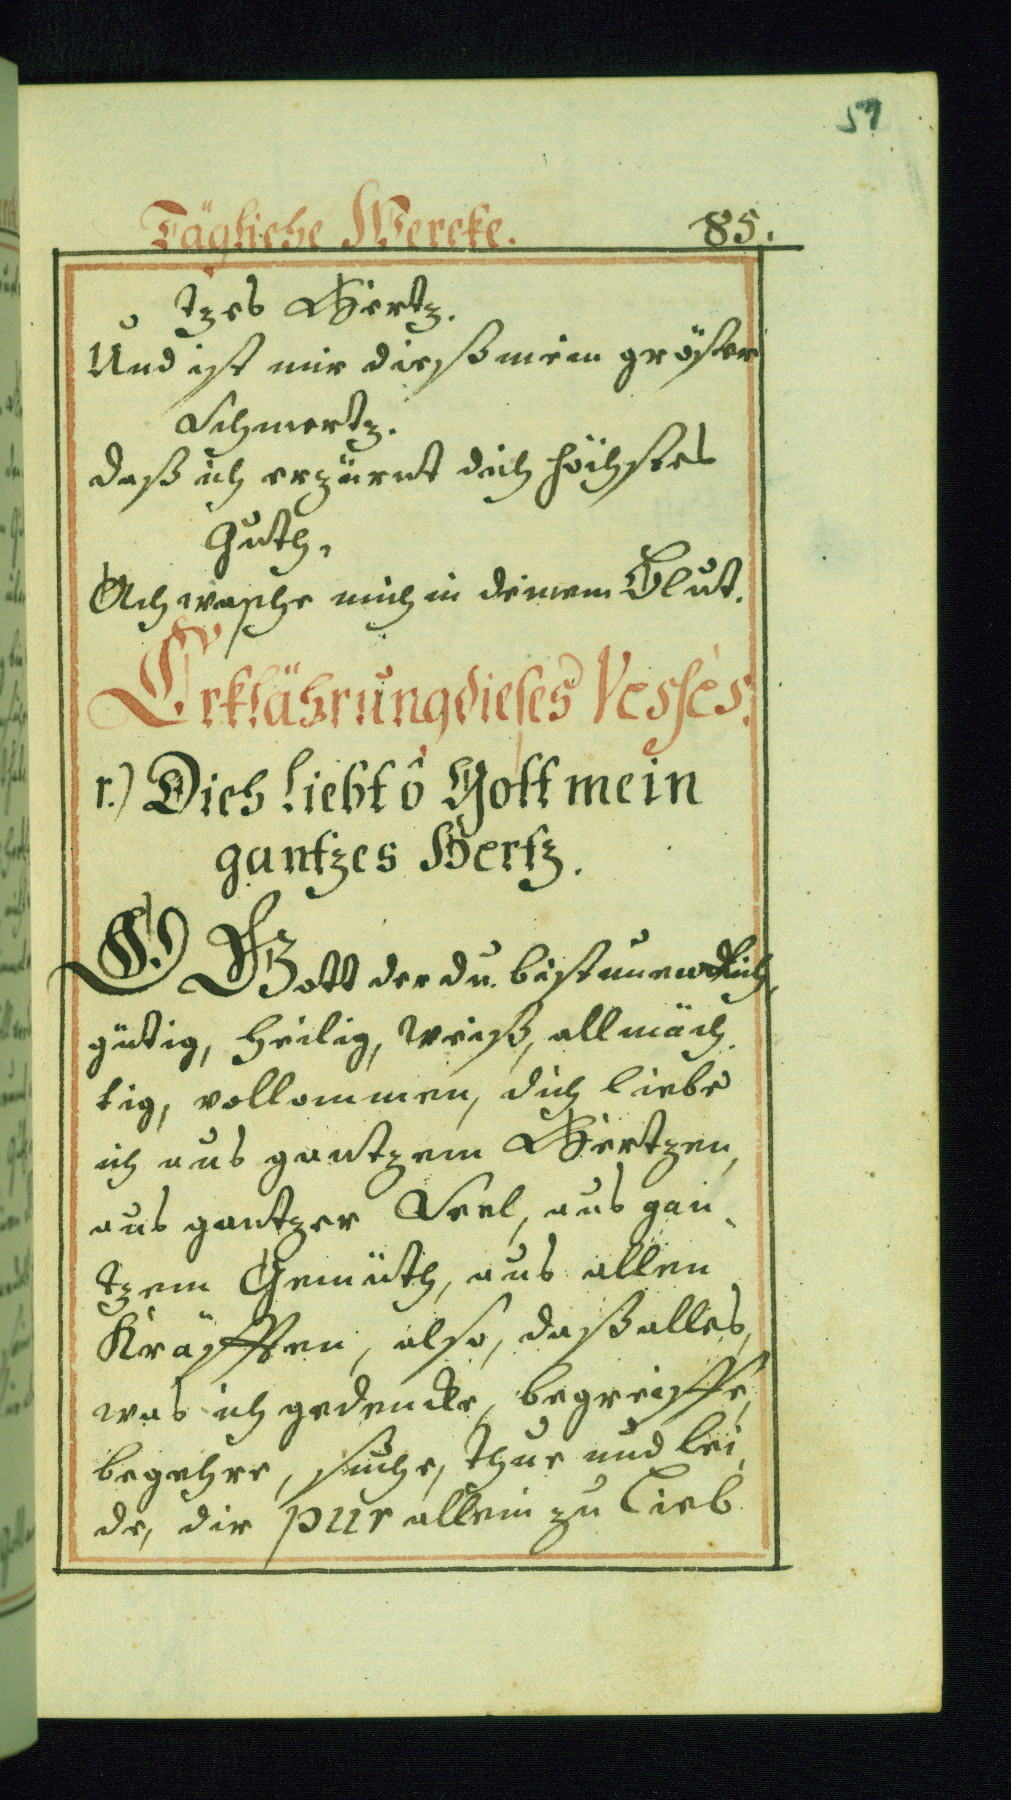 59
Tägliche Wercke. 85.
tzes Hertz.
Und ist mir diesß mein gröster
Schmertz.
daß ich erzürnt dich höchstes
Guth,
Ach wasche mich in deinem Blut.
Erklährung dieses Verses.
1.) Dich liebt ô Gott mein
gantzes Hertz.
O Gott der du bist unendlich,
gütig, heilig, weiß, allmäch-
tig, vollommen, dich liebe
ich aus gantzem Hertzen,
aus gantzer Seel, aus gan-
tzem Gemüth, aus allen
Kräfften, also, daß alles,
was ich gedencke, begreiffe,
begehre, suche, thue und lei-
de, dir pur allein zu Lieb